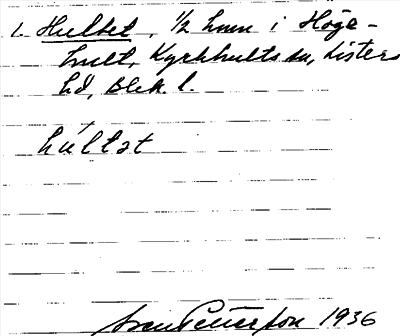 1. Hultet, 1/2 hmn i Höge-
hult, Kyrkhults sn, Listers
hd, Blek. l.
húltət
Sven Petersson 1936